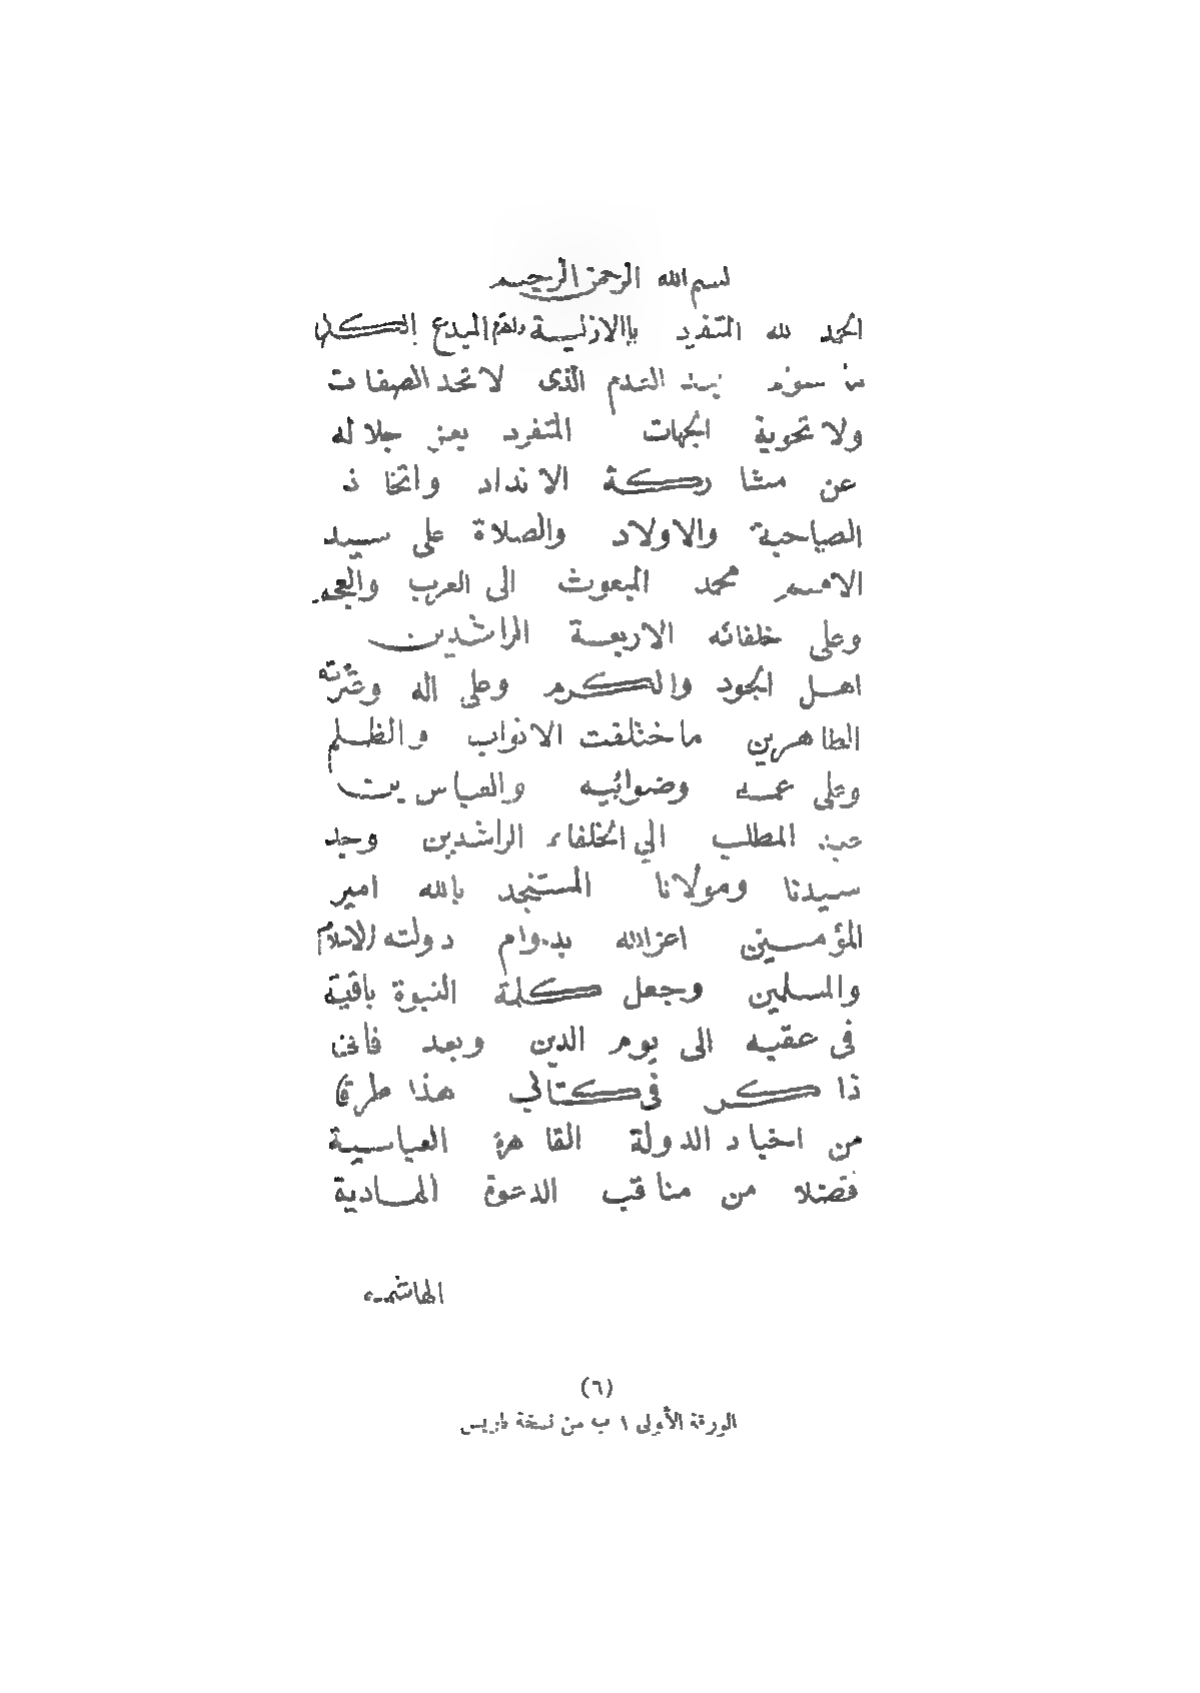 بسم الله الرحمن الرحيم
الحمد لله المتفرد بالازلية والقدم المبدع الكل
من سوره بيد القدم الذى لاتحد الصفات
ولا تحوية الجهات المتفرد بعز جلاله
عن مشاركة الانداد واتخاذ
الصاحبة والاولاد والصلاة على سيد
الامم محمد المبعوث الى العرب والعجم
وعلى خلفائه الاربعة الراشدين
اهل الجود والكرم وعلى اله وعترته
الطاهرين ماختلفت الانواب والظلم
وعلى عمه وضوابيه والعباس بن
عبد المطلب الي الخلفاء الراشدين وجد
سيدنا ومولانا المستنجد بالله امير
المؤمنين اعزالله بدوام دولته الاسلام
والمسلمين وجعل كلمة النبوة باقية
فى عقبه الى يوم الدين وبعد فانى
ذاكر فى كتابي هذا طرفا
من اخبار الدولة القاهرة العباسية
فضلا من مناقب الدعوة الهادية
الهاشمية
(٦)
الورقة الأولى ١ ب من نسخة باريس